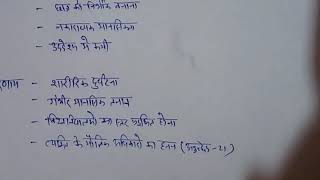 - छात्र को निर्भीक बनाना
- नकारात्मक मानसिकता
- उद्देश्य में कमी
- शारीरिक दुर्घटना
- गंभीर मानसिक तनाव
- विश्वविद्यालयों का स्तर प्रभावित होना
- व्यक्ति के मौलिक अधिकारों का हनन (अनुच्छेद-21)